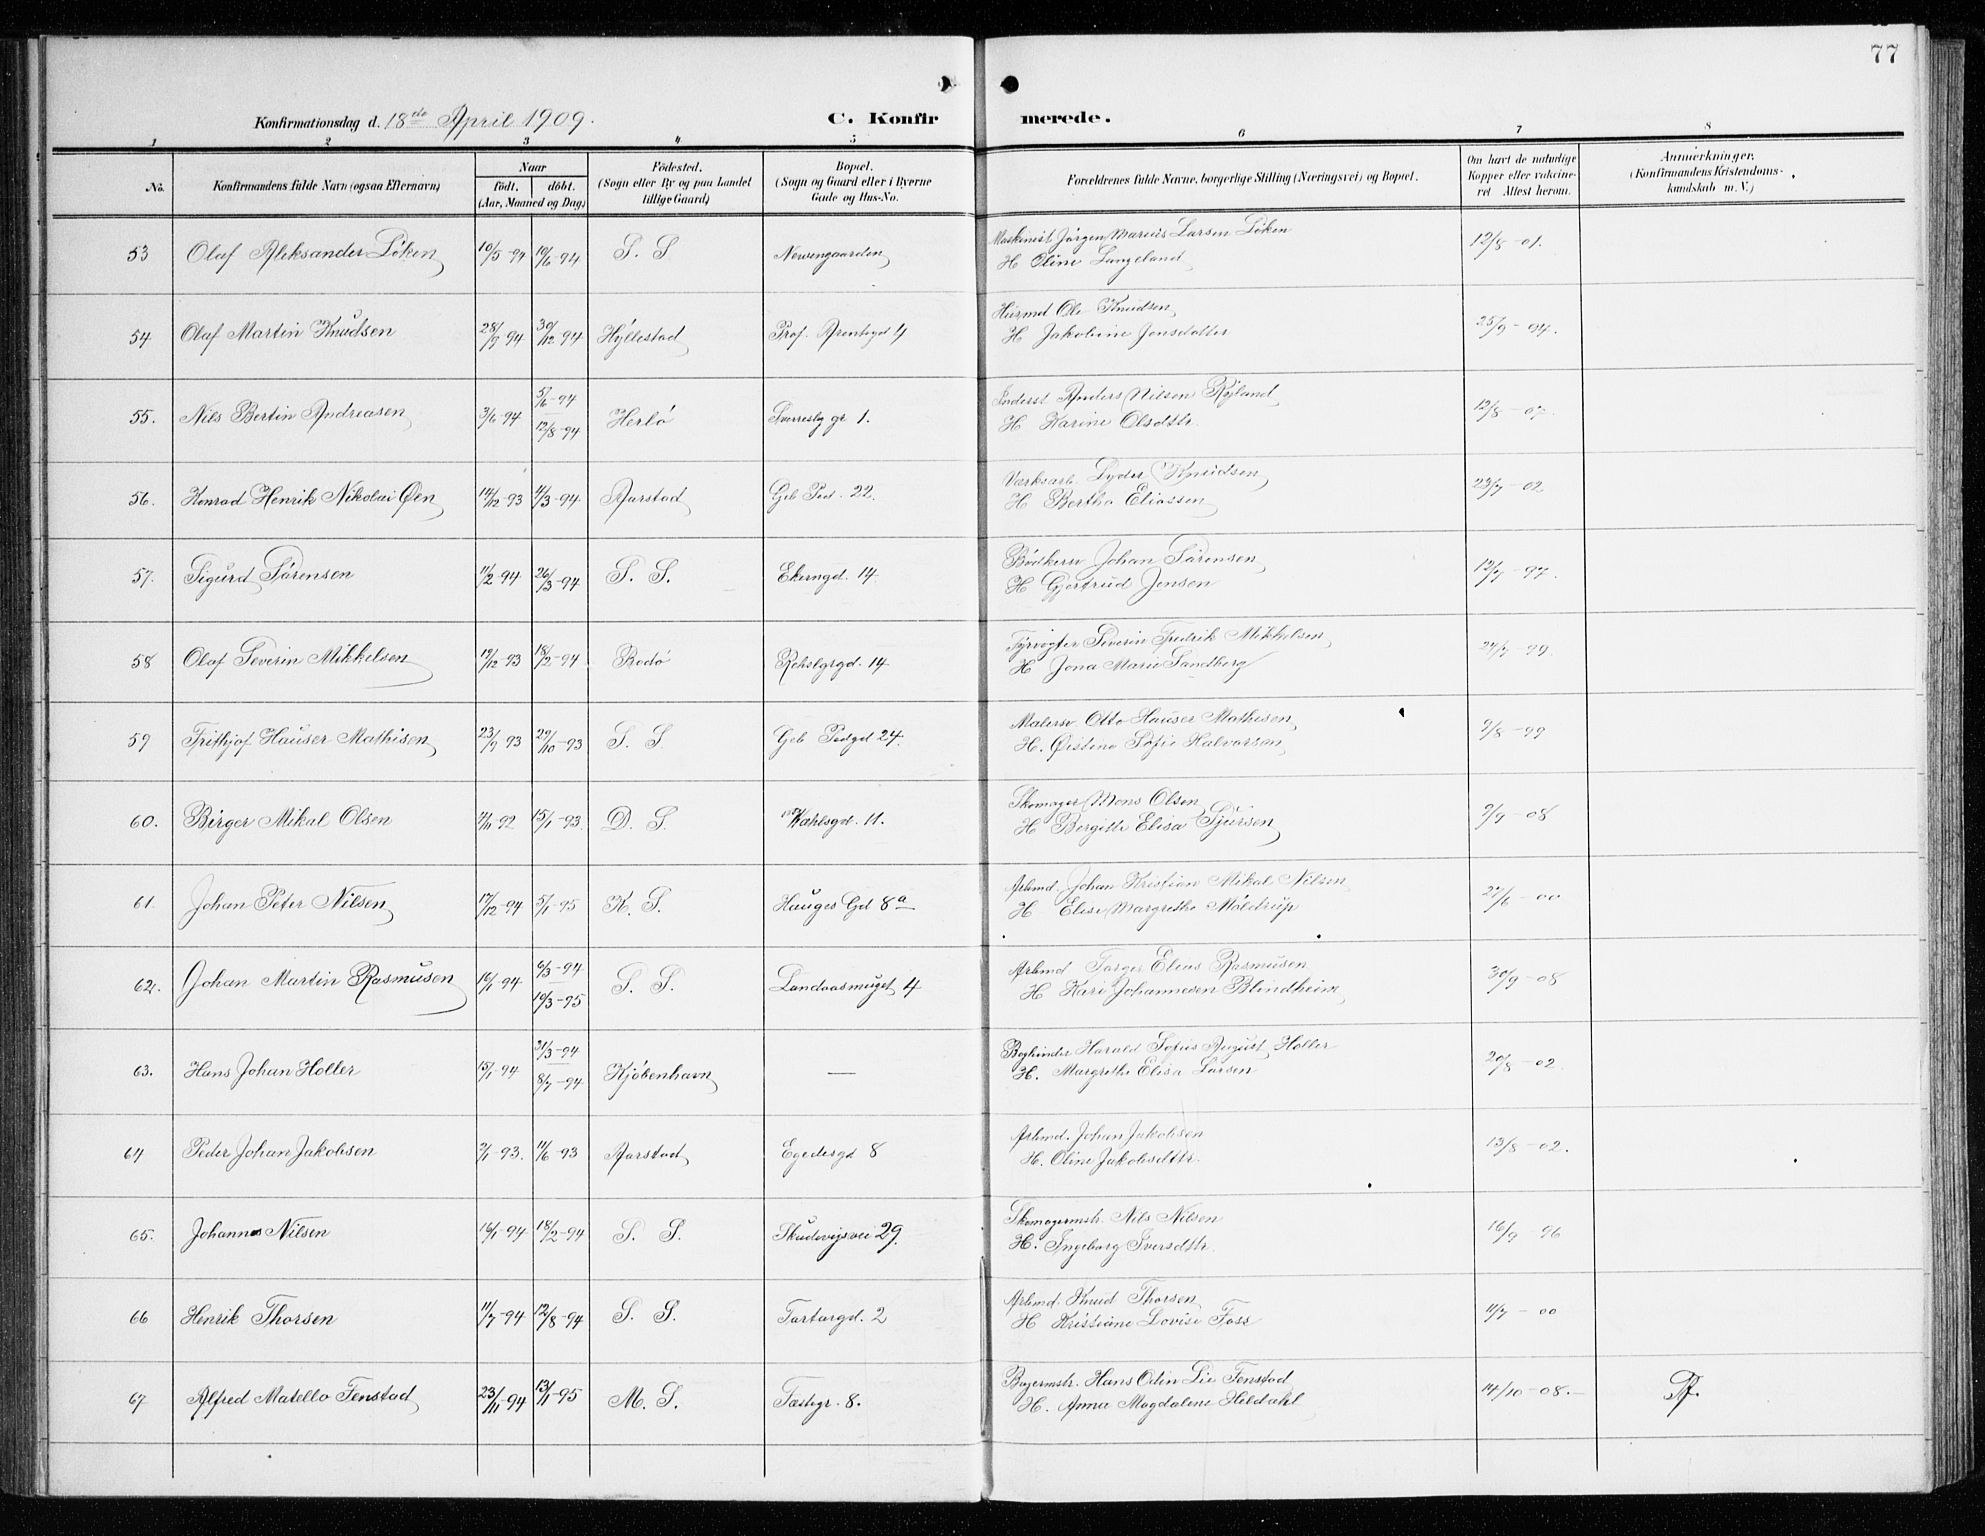 77
Konfirmationsdag d. 18de April 1909.
C. Konfirmerede.
1 2 3 4 5 6 7 8
No. Konfirmandens fulde Navn (ogsaa Efternavn)
Naar
født. döbt.
(Aar, Maaned og Dag)
Födested.
(Sogn eller By og paa Landet
tillige Gaard)
Bopæl.
(Sogn og Gaard eller i Byerne
Gade og Hus-No.
Forældrenes fulde Navne, borgerlige Stilling (Næringsvei) og Bopæl.
Om havt de naturlige
Kopper eller vaccine-
ret. Attest herom.
Anmærkninger.
(Konfirmandens Kristendoms-
kundskab m. V.)
53 Olaf Aleksander Löken 10/5-94 10/6-94 S. S Maskinist Jörgen Marius Larsen Löken 12/8-01.
H Oline Langeland
54 Olaf Martin Knudsen 28/9-94 30/12-94 Hyllestad Prof. Arentsgd 4 Husmd Ole Knudsen 25/9-94.
H Jakobine Jensdatter
55. Nils Bertin Andreasen 3/6-94 5/6-94 12/8-94 Herlö Sverresbg gr 1. Inderst Anders Nilsen Ryland 12/8-07.
H Karine Olsdttr.
56. Konrad Henrik Nikolai Øen 14/12-93 4/3-94 Aarstad Geb Ped. 22. Værksarb. Lyder Knudsen 23/7-02
H Bertha Eliassen
57. Sigurd Sörensen 11/2-94 26/3-94 S. S. Ekerngd. 14. Bödkersv Johan Sörensen 12/7-97.
H Gjertrud Jensen
58 Olaf Severin Mikkelsen 19/12-93 18/2-94 Bodö 14 Fyrvogter Severin Fredrik Mikkelsen 27/7-99.
H Jona Marie Sandberg
59 Frithjof Hauser Mathisen 23/9 93 29/10-93 S. S. Geb Pedgd 24. Malersv Otto Hauser Mathisen 2/8-99
H. Østine Sofie Halvorsen
60. Birger Mikal Olsen 7/11-92 15/1-93. D. S. Kahlsgd. 11. Skomager Mons Olsen 2/9-08
H Bergitte Elisa Sjursen
61. Johan Peter Nilsen 17/12-94 5/1-95 K. S. Hauges Gd 8a Arbmd. Johan Kristian Mikal Nilsen 27/6-00
H Elise Margrethe Möldrup
62. Johan Martin Rasmusen 16/1-94 6/3-94 10/3-95 S. S. Landaasmuget 4 Arbmd Torger Elias Rasmusen 30/9-08
H Kari Johannesen Blindheim
63. Hans Johan Holler 15/1-94 31/3-94 8/7-94 Kjöbenhavn — Bogbinder Harald Sofus August Holler 20/8-02.
H. Margrethe Elisa Larsen
64 Peder Johan Jakobsen 2/1-93. 11/6-93 Aarstad Egedesgd 8 Arbmd. Johan Jakobsen 13/8-02.
H. Oline Jakobsdttr.
65. Johannes Nilsen 16/1-94 18/2-94 S. S. Skudevigsvei 29. Skomagermstr. Nils Nilsen 16/9-96
H. Ingeborg Iversdttr.
66 Henrik Thorsen 11/7-94 12/8-94 S. S. Tartargd. 2 Arbmd. Knud Thorsen 11/7-00
H Kristiane Lovise Foss
67 Alfred Matello Fenstad 23/11-94 13/1-95 M. S. Fæstegr. 8. Bagermstr. Hans Odin Lie Fenstad 14/10-08.
H. Anna Magdalene Heldahl